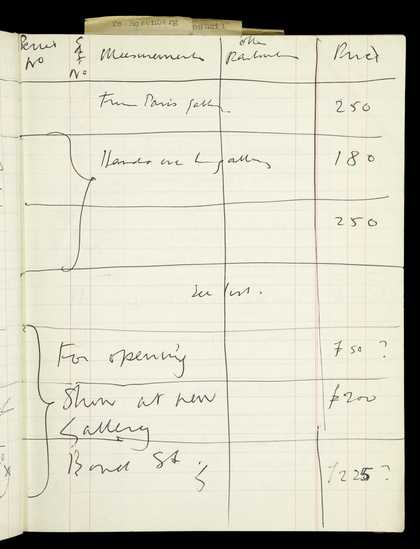 To Rosenberg
Period No S & F No Measurements Other Particulars Price
From Paris gallery 250
Hands over to gallery 180
250
See list.
For opening 750 ?
Show at new £200
Gallery
Bond St. 225 ?